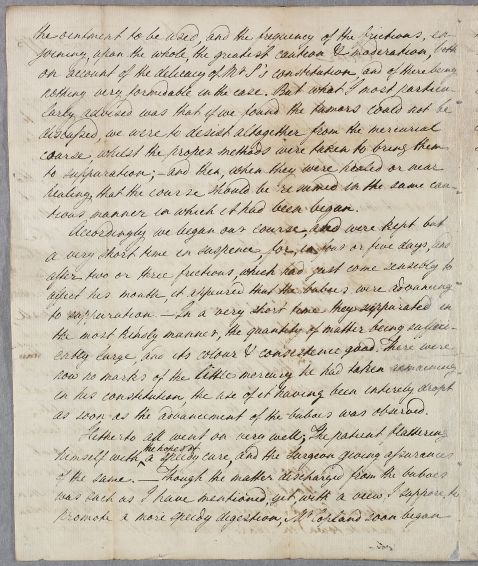 the ointment to be used, and the frequency of the frictions, en-
joining, upon the whole, the greatest caution & moderation, both
on account of the delicacy of Mr I's constitution, and of there being
nothing very formidable in the case. But what I most particu-
larly advised was that if we found the tumors could not be
discussed, we were to desist altogether from the mercurial
course, whilst the proper methods were taken to bring them
to suppuration; - and then, when they were healed or near
healing, that the course should be resumed in the same cau-
tious manner in which it had been began.
Accordingly we began our course, and were kept but
a very short time in suspence, for, in four or five days, and
after two or three frictions, which had just come sensibly to
affect his mouth, it appeared that the buboes were advancing
to suppuration. - In a very short time they suppurated in
the most kindly manner, the quantity of matter being suffici-
ently large, and its colour & consistence good. There were
now no marks of the little mercury he had taken remaining
in his constitution, the use of it having been entirely dropt
as soon as the advancement of the buboes was observed.
Hitherto all went on very well; The patient flattering
himself with the hopes of a speedy cure, and the Surgeon giving assurances
of the same. - Though the matter discharged from the buboes
was such as I have mentioned, yet, with a view, I suppose, to
promote a more speedy digestion, Mr soon began